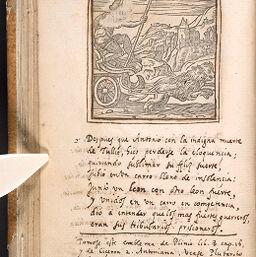 Despues que Antonio con la indigna muerte
de Tullio, hizo perderse la eloquencia,
queriendo sublimar su suerte,
subio en un carro lleno de insolencia:
Junto un leon con otro leon fuerte,
y Unidos en un carro en competencia,
dio a entender que los mas fuertes guerreros,
eran sus tributarios prisoneros.
Tomose este emblema de Plinio lib. 8 cap. 16
y de Ciceron 2. Antoniana, Vease Plutarcho